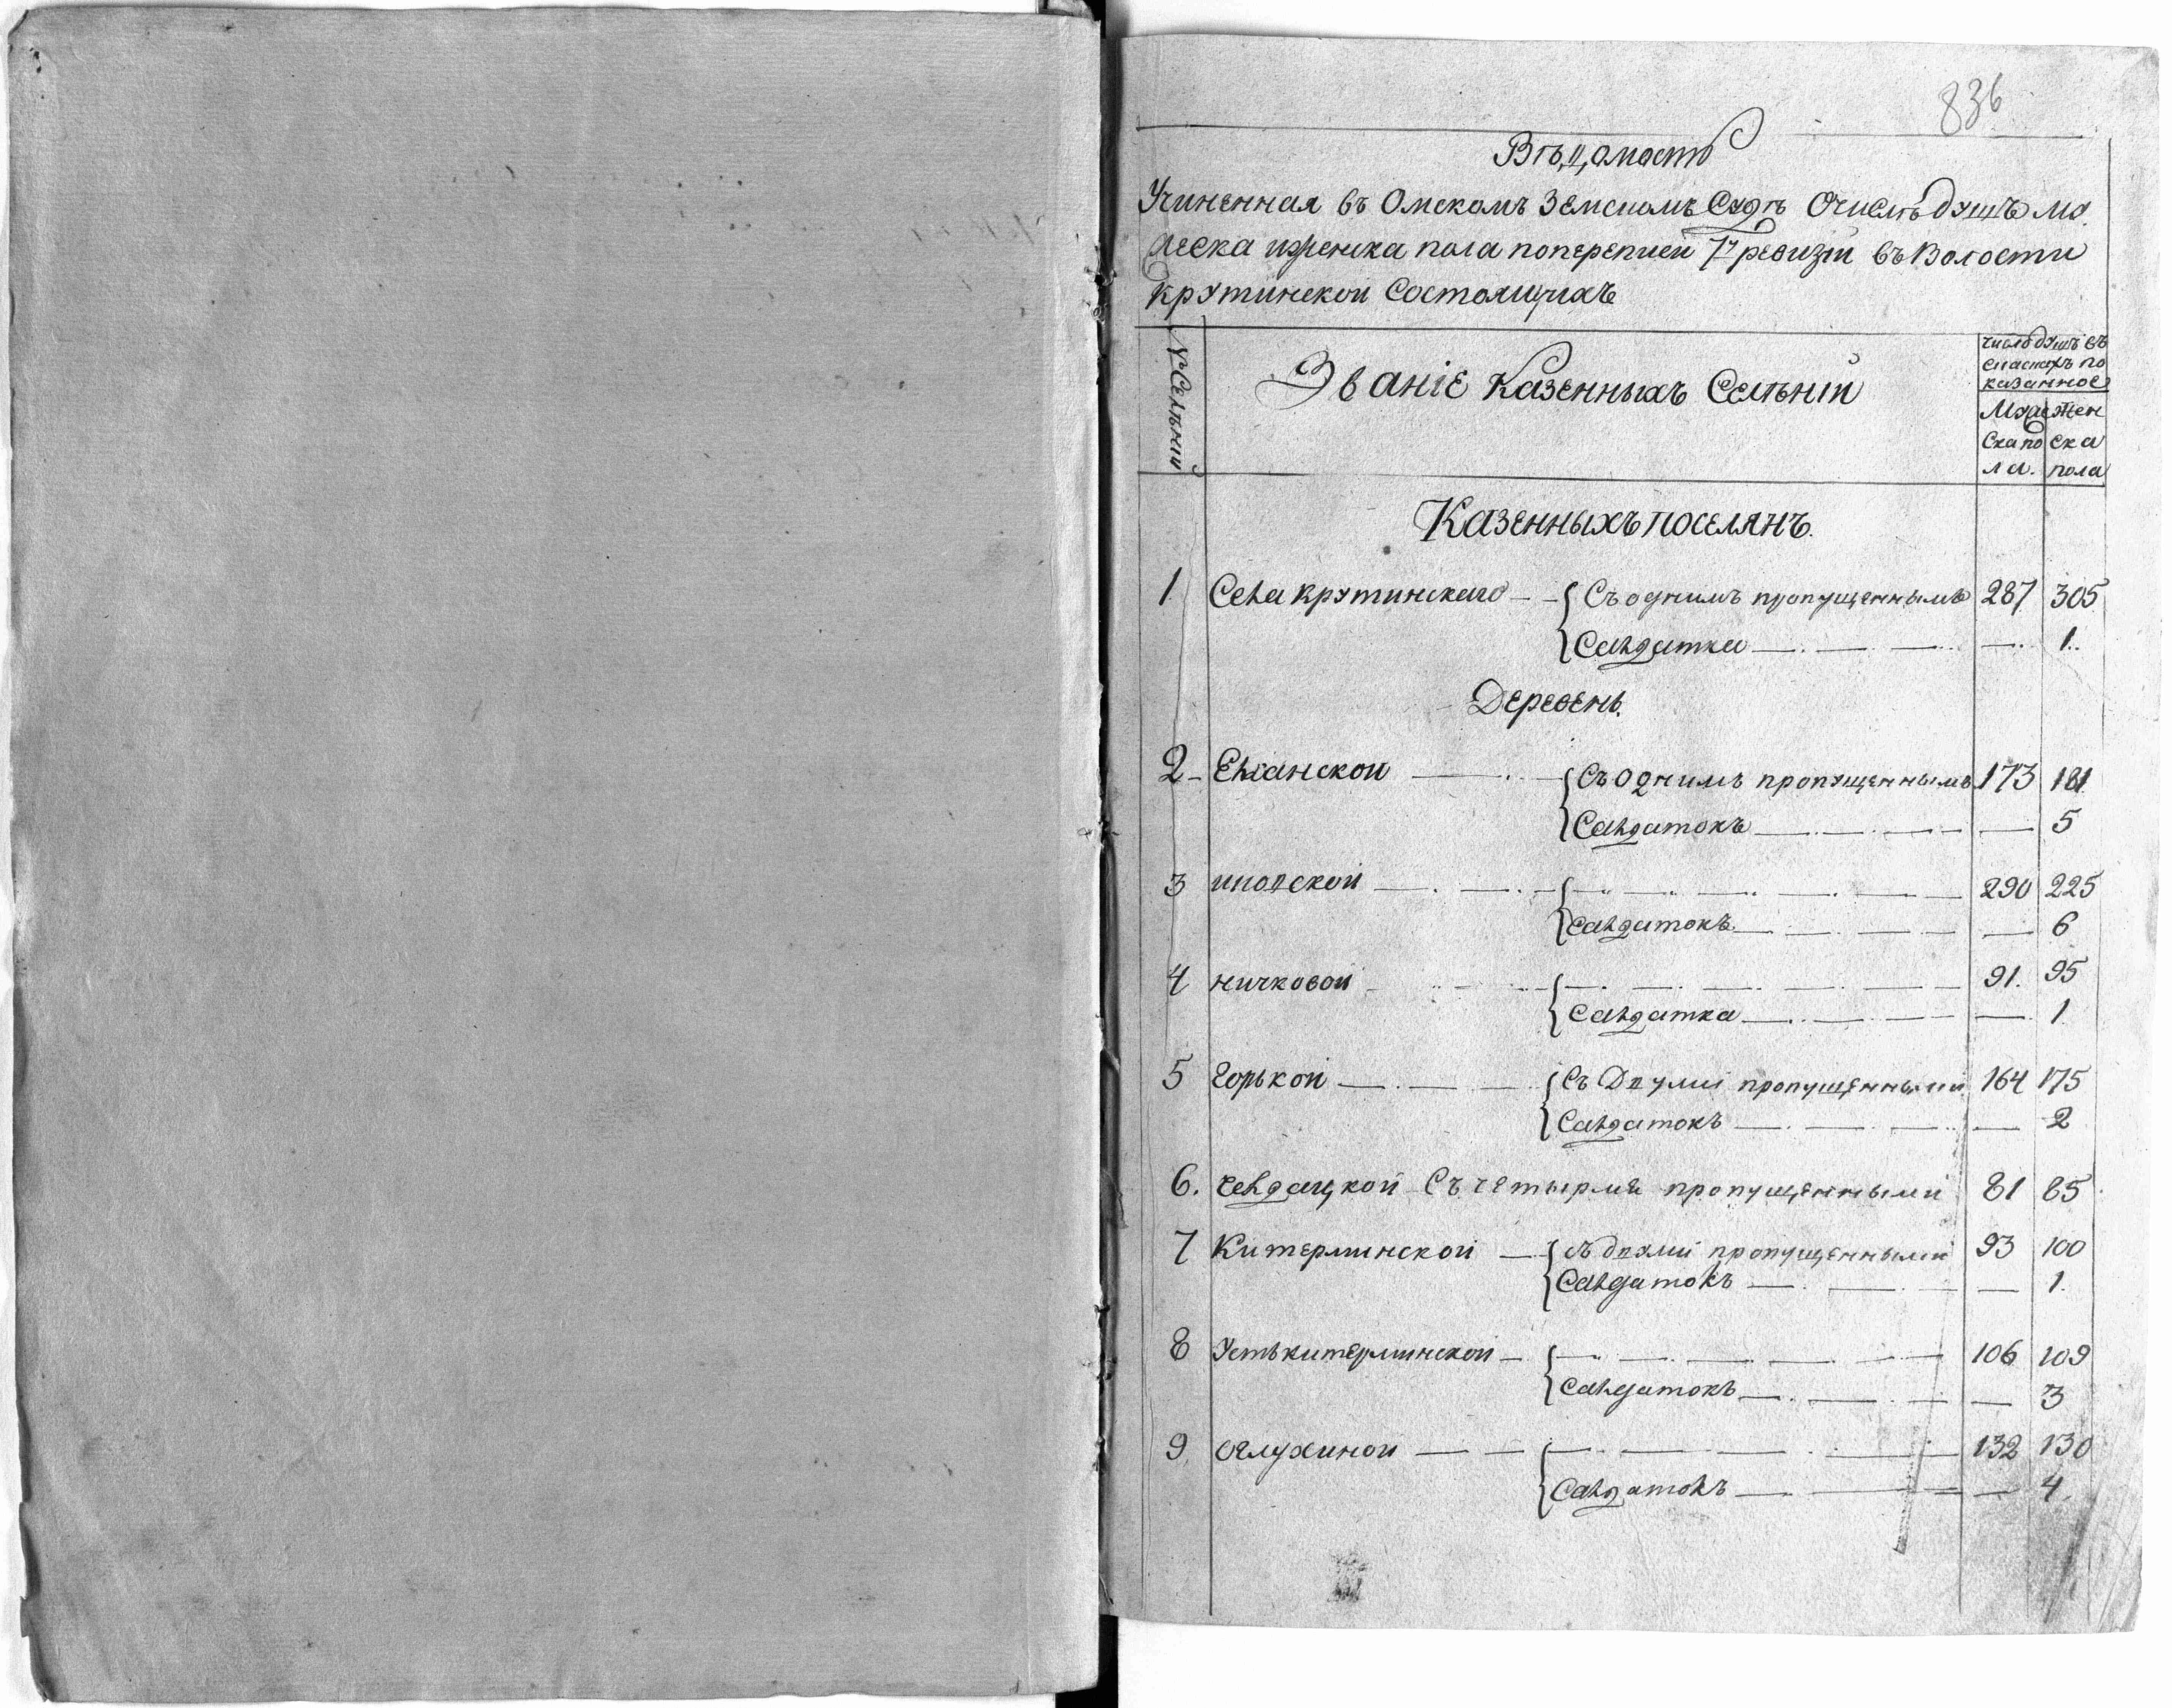 836
Вѣдомость
Учиненная въ Омскомъ Земскомъ Судѣ Очислѣ душъ му
жеска иженска пола поперепиеи 7й ревизіи въ Волости
крутинской Состоящихъ
№ Селѣний
Званіе Казенныхъ Селѣніи
число душъ въ
сказкахъ по
казанное
Мужес Жен
ска по ска
ла. пола
Казенныхъ поселянъ.
1 Села крутинскаго Съ однимъ пропущеннымъ 287 305
Салдатка 1.
Деревень.
2 Еланской Съ Однимъ пропущеннымъ 173 181
Салдатокъ 5
3 290 225
Салдатокъ 6
4 ничковой 91. 95
Салдатка 1
5 Горькой Съ Двумя пропущенными 164 175
Салдатокъ 2
6. челдацкой Съ четырмя пропущенными 81 85
7 Китерминской съ двумя пропущенными 93 100
Салдатокъ 1.
8 Устькитерминской 106 109
Салдатокъ 3
9 оглухиной 132 130
Салдатокъ 4